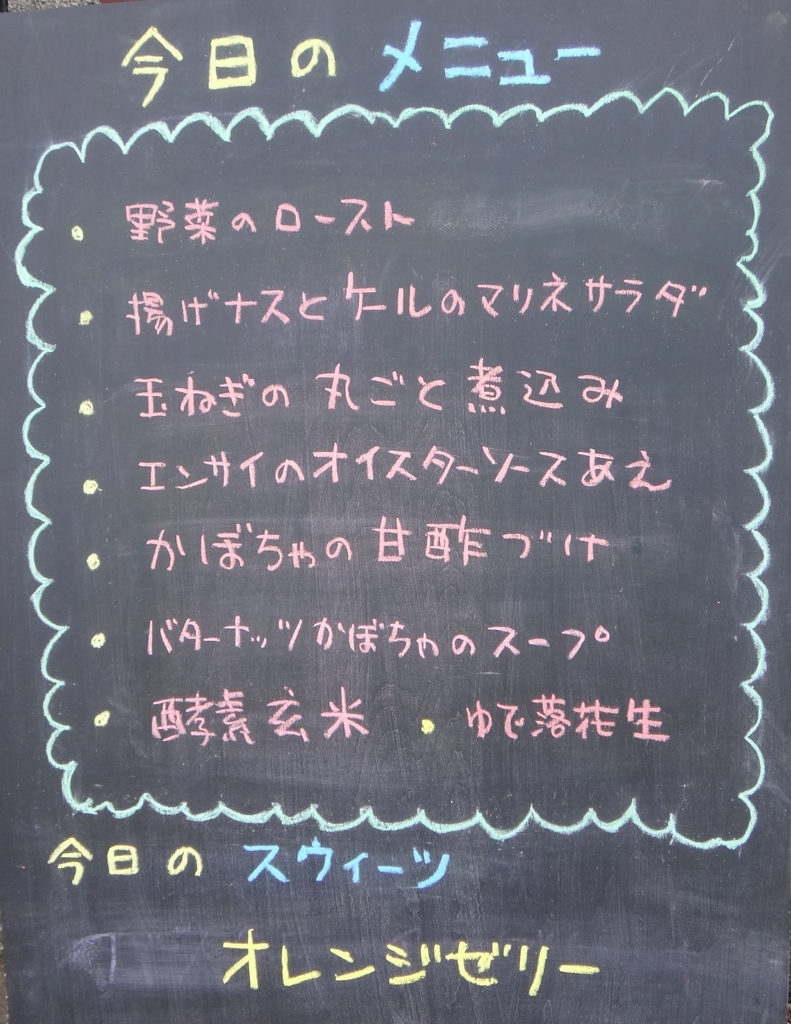 今日のメニュー
・野菜のロースト
・揚げナスとケールのマリネサラダ
・玉ねぎの丸ごと煮込み
・エンサイのオイスターソースあえ
・かぼちゃの甘酢づけ
・バターナッツかぼちゃのスープ
・酵素玄米 ・ゆで落花生
今日のスウィーツ
オレンジゼリー